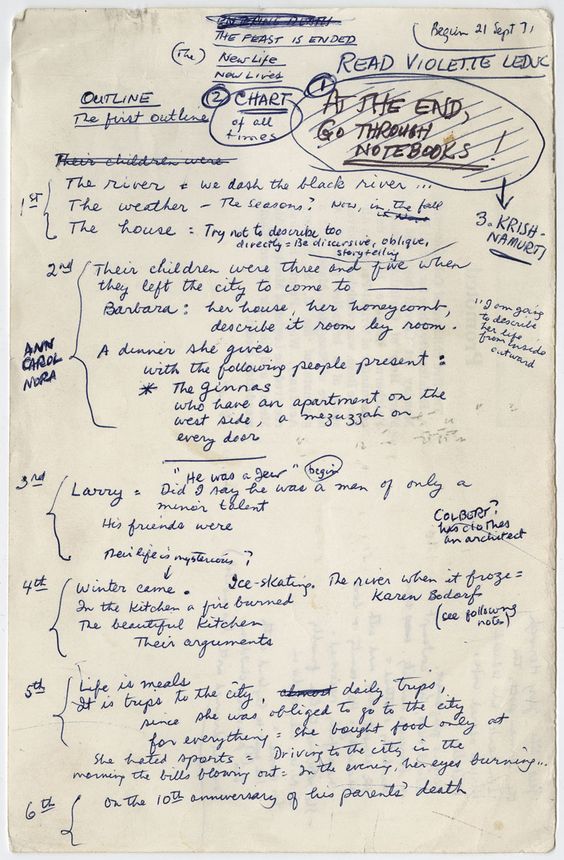 THE FEAST IS ENDED
(The) New Life
New Lives
Begun 21 Sept 71
READ VIOLETTE LEDUC
OUTLINE
The first outline
② CHART
of all
times
① AT THE END,
GO THROUGH
NOTEBOOKS!
3. KRISH-
NAMURTI
Their children were
1st
The river = we dash the black river ...
The weather - The seasons? Now, in the fall
The house = Try not to describe too
directly = Be discursive, oblique,
storytelling
2nd
Their children were three and five when
they left the city to come to ____
Barbara: her house, her honeycomb,
describe it room by room.
"I am going
to describe
her life
from inside
outward
ANN
CAROL
NORA
A dinner she gives
with the following people present:
* The Ginnas
who have an apartment on the
west side, a mezuzzah on
every door
3rd
"He was a Jew" begin
Larry = Did I say he was a man of only a
minor talent
His friends were
COLBERT?
has clothes
an architect
Their life is mysterious?
4th
Winter came. Ice-skating. The river when it froze =
In the kitchen a fire burned
Karen Bodorf
The beautiful kitchen
(see following
notes)
Their arguments
5th
Life is meals
It is trips to the city, almost daily trips,
since she was obliged to go to the city
for everything = she bought food only at
She hated sports = Driving to the city in the
morning the bills blowing out = In the evening, her eyes burning...
6th
On the 10th anniversary of his parents' death